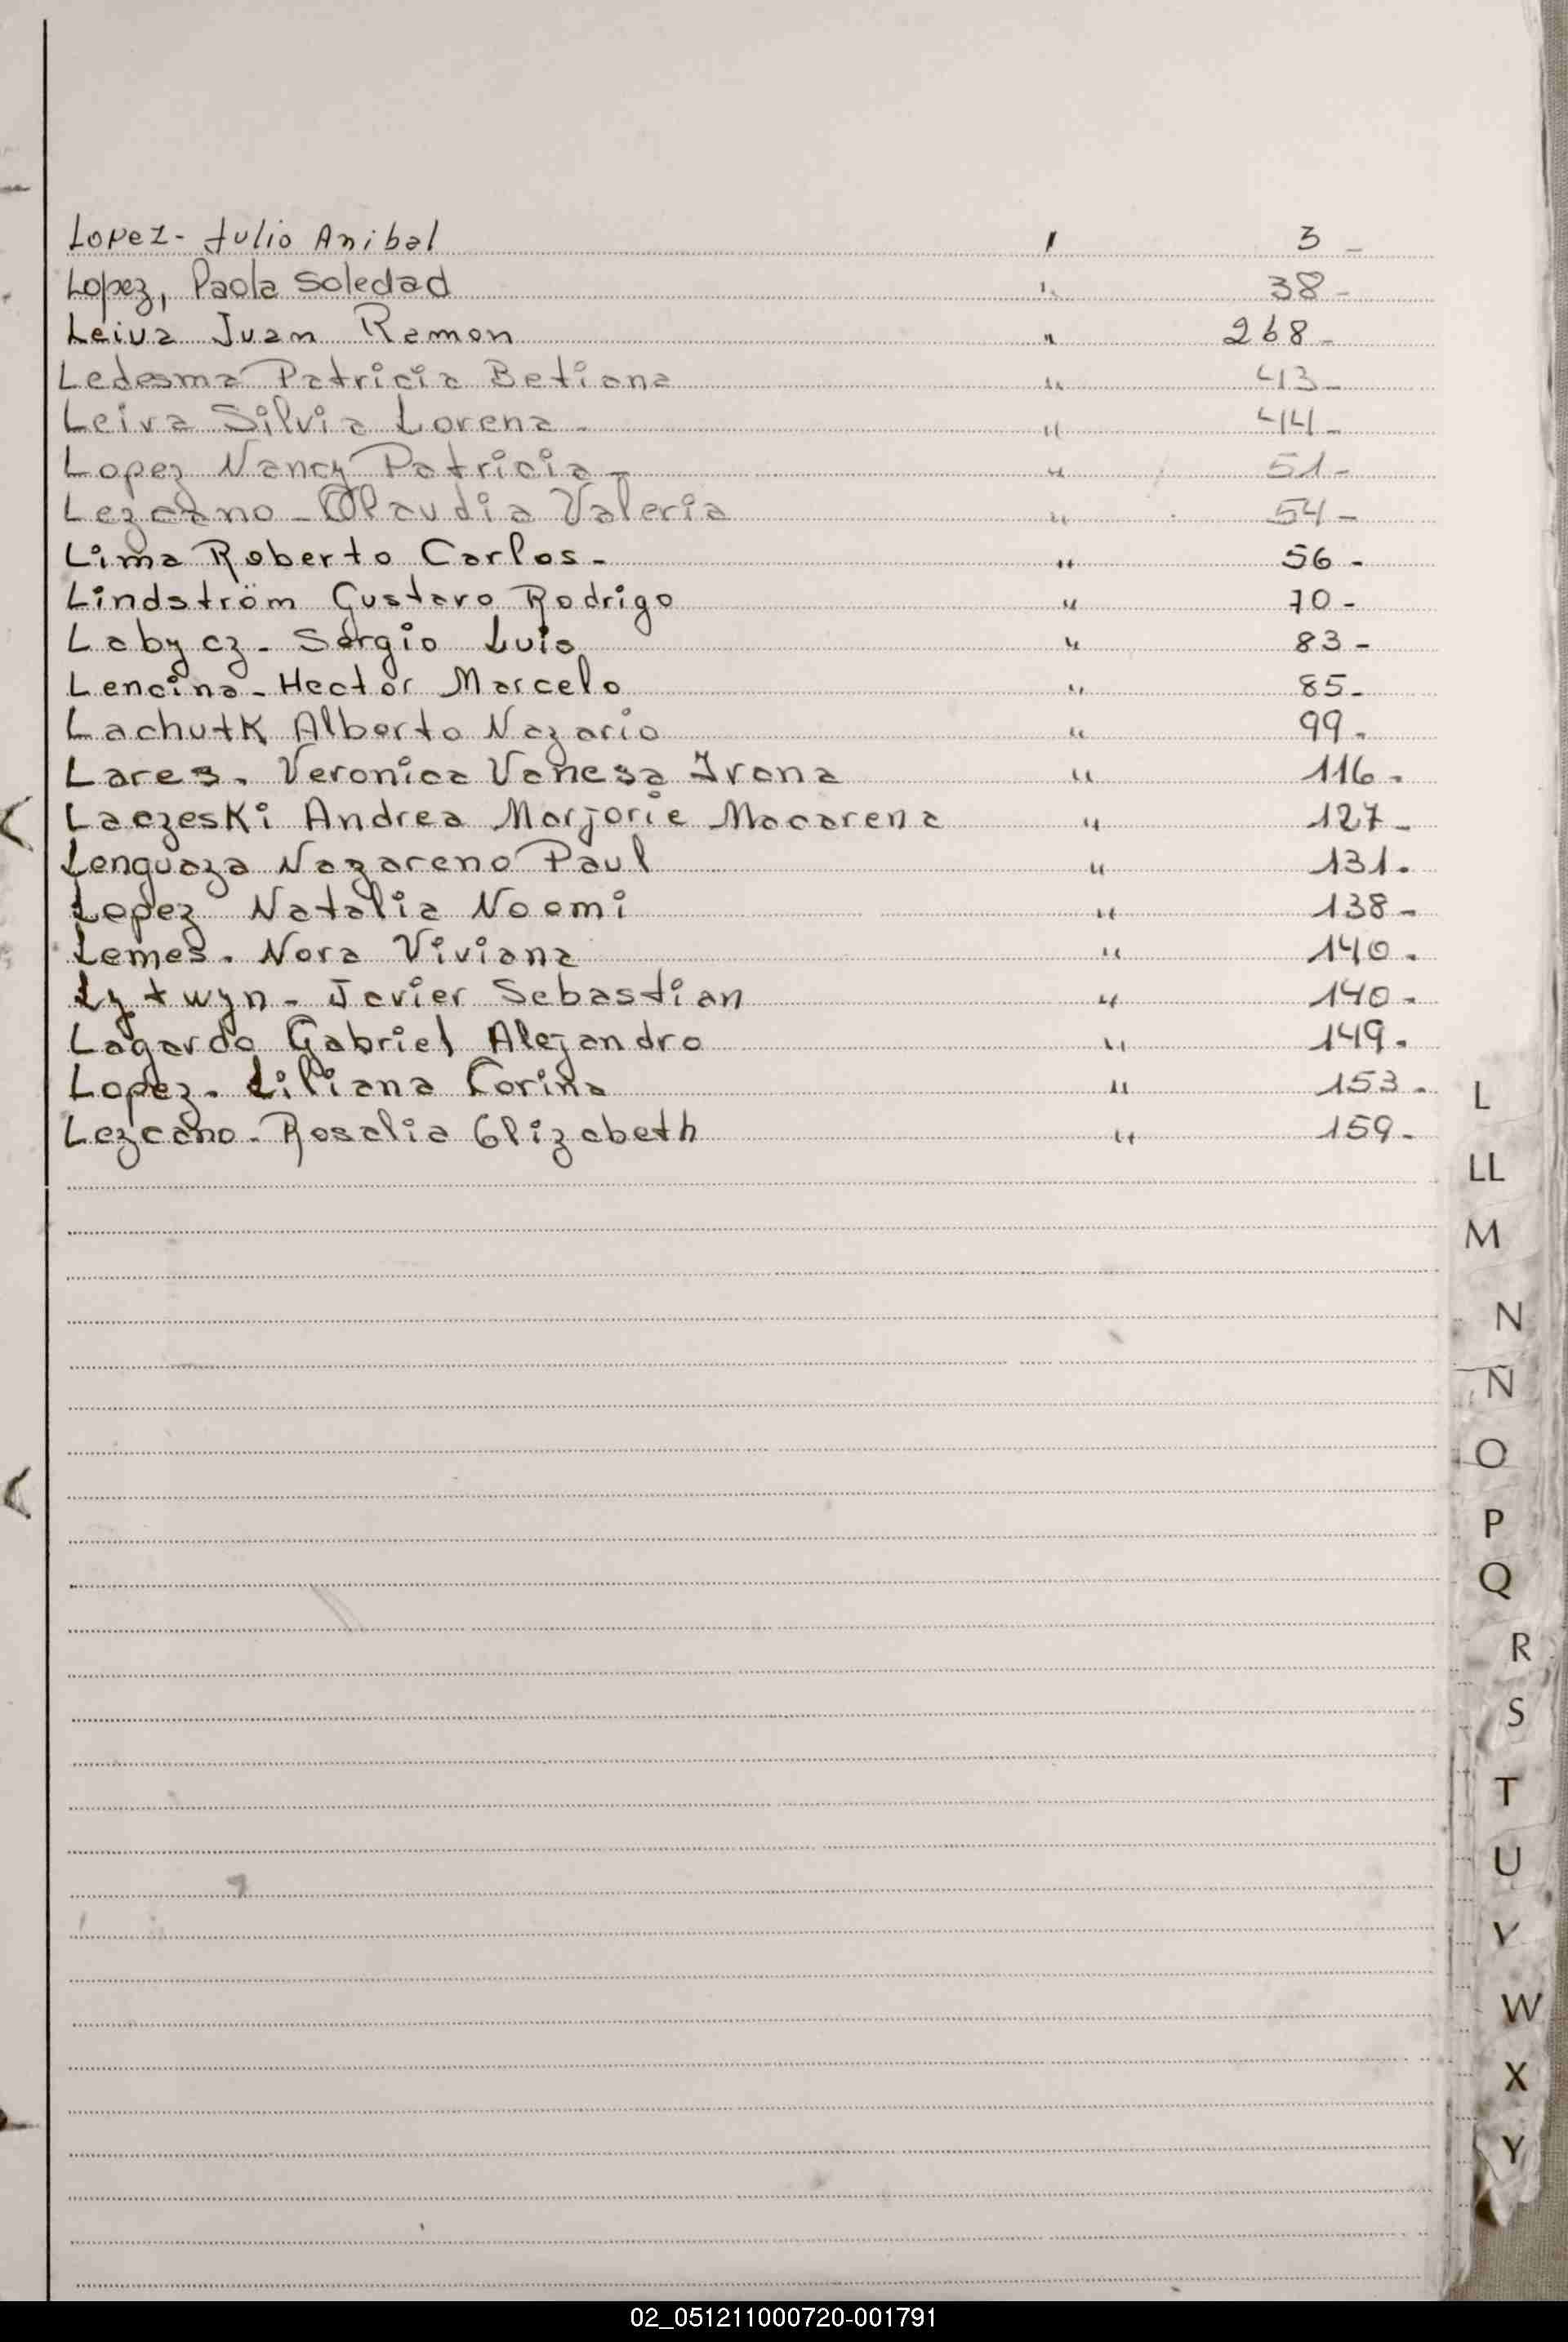 Lopez- Julio Anibal " 3 -
Lopez, Paola Soledad " 38 -
Leiva Juan Ramon " 268 -
Ledesma Patricia Betiana " 43 -
Leiva Silvia Lorena - " 44 -
Lopez Nancy Patricia - " 51 -
Lezcano - Claudia Valeria " 54 -
Lima Roberto Carlos - " 56 -
Lindström Gustavo Rodrigo " 70 -
Labycz - Sergio Luis " 83 -
Lencina - Hector Marcelo " 85 -
Lachutk Alberto Nazario " 99 -
Lares - Veronica Vanesa Ivana " 116 -
Laczeski Andrea Marjorie Macarena " 127 -
Lenguaza Nazareno Paul " 131 -
Lopez Natalia Noemi " 138 -
Lemes - Nora Viviana " 140 -
Lytwyn - Javier Sebastian " 140 -
Lagardo Gabriel Alejandro " 149 -
Lopez - Liliana Corina " 153 -
Lezcano - Rosalia Elizabeth " 159 -
L
LL
M
N
Ñ
O
P
Q
R
S
T
U
V
W
X
Y
02_051211000720-001791